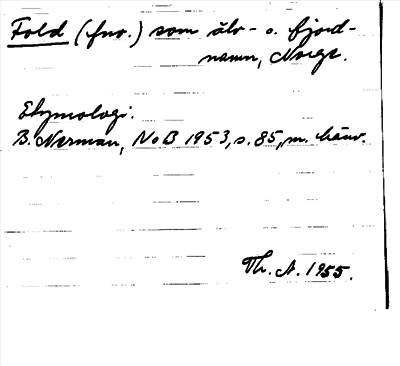 Fold (fnv.) som älv- o. fjord-
namn, Norge.
Etymologi.
B. Nerman, NoB 1953, s. 85, m. hänv.
Th. A. 1955.